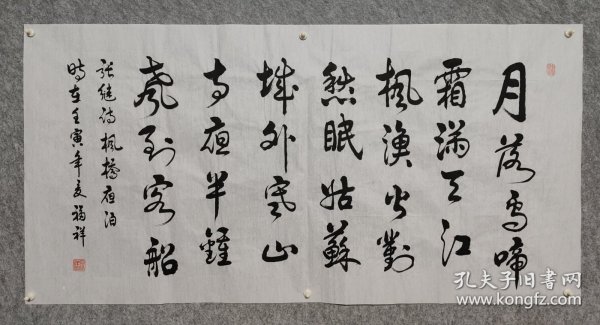 月落烏啼
霜满天江
楓漁火對
愁眠姑蘇
城外寒山
寺夜半鐘
聲到客船
张继诗楓橋夜泊
時在壬寅年夏福祥
孔夫子旧书网
www.kongfz.com